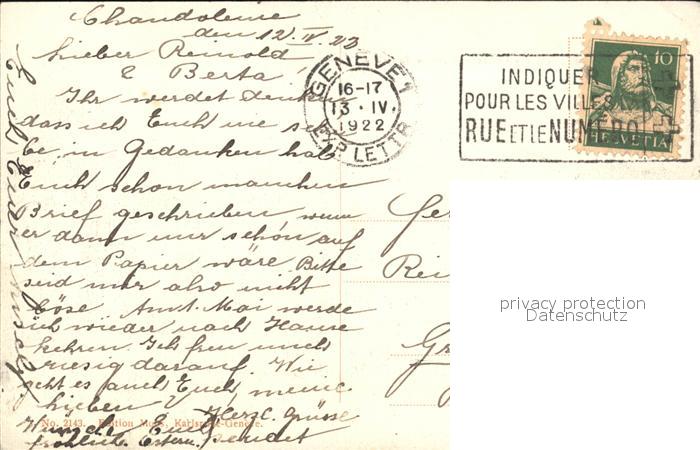 Chandoleine
den 12. IV. 23
Lieber Reinold
& Berta!
Ihr werdet denken
dass ich Euch nie sc
be in Gedanken hab
Euch schon manchen
Brief geschrieben wenn
er dann nur schön auf
dem Papier wäre Bitte
seid mir also nicht
böse. Am 1. Mai werde
ich wieder nach Hause
kehren. Ich freu mich
riesig darauf. Wie
geht es auch Euch, meine
lieben? Herzl. Grüsse
Wünscht Euch sendet
fröhliche Ostern.
Euch Euer
No. 2143. Edition Karlsruhe-Genève.
GENÈVE 1
16-17
13 · IV.
1922
EXP. LETTR.
INDIQUER
POUR LES VILLES
RUE ET LE NUMÉRO
10
HELVETIA
Rei
Gr
privacy protection
Datenschutz